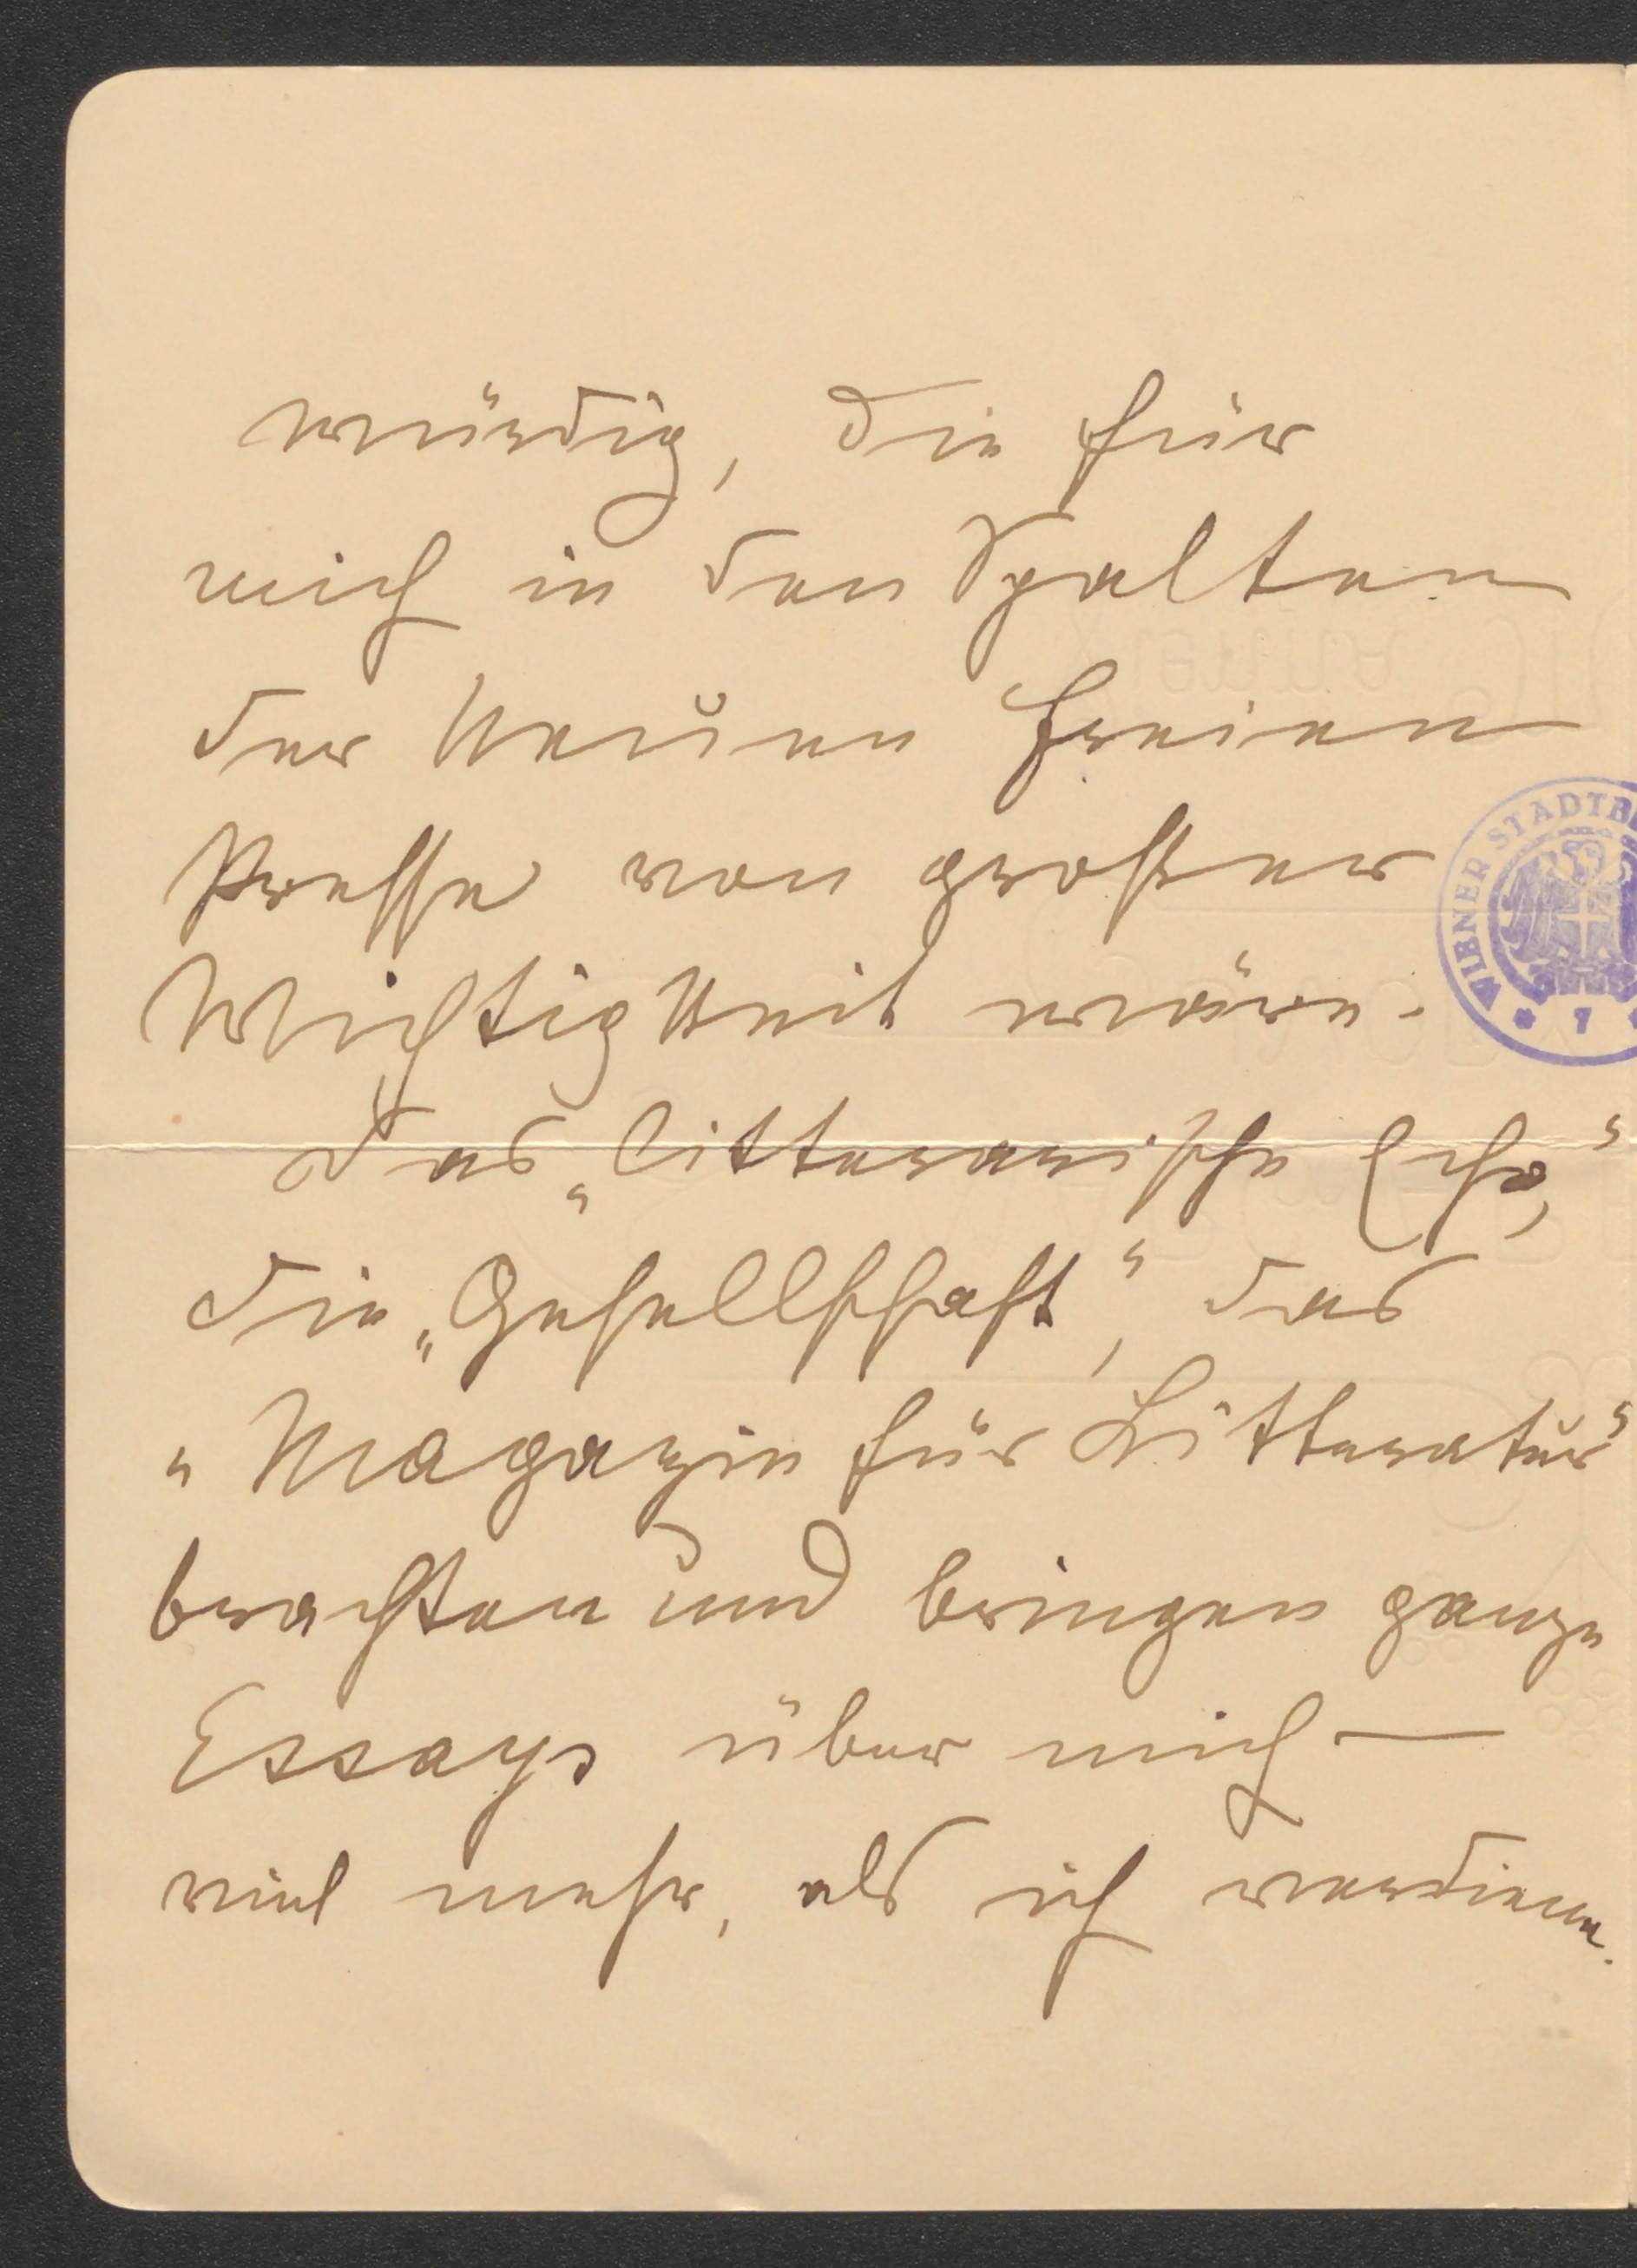 würdig, die für
mich in den Spalten
der Neuen freien
Presse von großer
Wichtigkeit wäre.
Das „litterarische Echo“,
die „Gesellschaft“, das
„Magazin für Litteratur“
brachten und bringen ganze
Essays über mich —
viel mehr, als ich verdiene.
WIENER STADTB
* 7 *